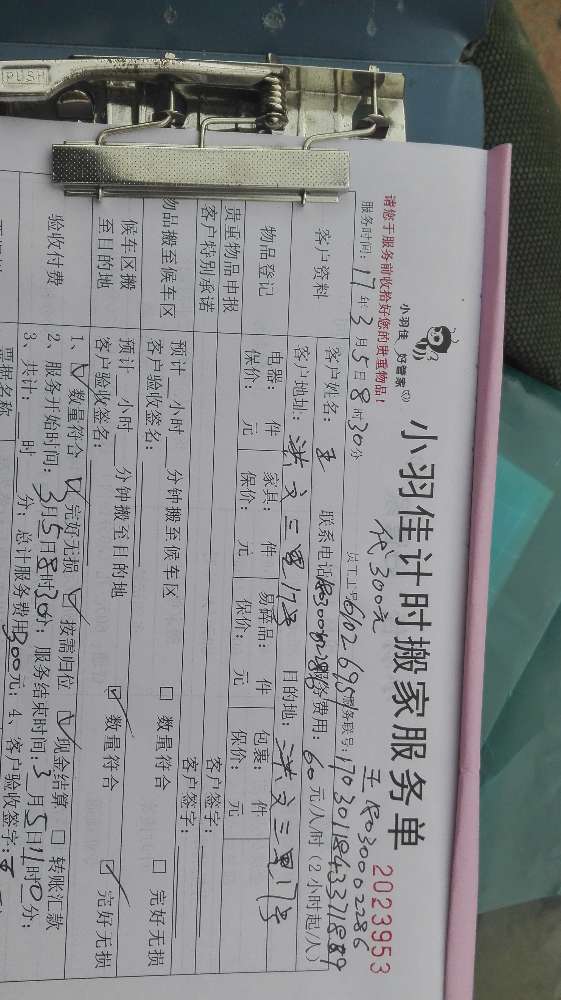 PUSH
小羽佳 好管家
小羽佳计时搬家服务单 2023953
请您于服务前收拾好您的贵重物品！
代300元
服务时间：17年3月5日8时30分 员工工号 服务联号：
客户资料 客户姓名：王 联系电话 服务费用：60元/人/时（2小时起/人）
客户地址：洪文三里17号 目的地：洪文三里17号
物品登记 电器： 件 家具： 件 易碎品： 件 包裹： 件
保价： 元 保价： 元 保价： 元 保价： 元
贵重物品申报 客户签字：
客户特别承诺 客户签字：
物品搬至候车区 预计__小时__分钟搬至候车区 □ 数量符合 □ 完好无损
客户验收签名：
候车区搬至目的地 预计__小时__分钟搬至目的地 ☑ 数量符合 ☑ 完好无损
客户验收签名：
验收付费 1、☑ 数量符合 ☑ 完好无损 ☑ 按需归位 ☑ 现金结算 □ 转账汇款
2、服务开始时间：3月5日8时30分；服务结束时间：3月5日11时0分；
3、共计： 时 分；总计服务费用300元；4、客户验收签字：王
票据名称